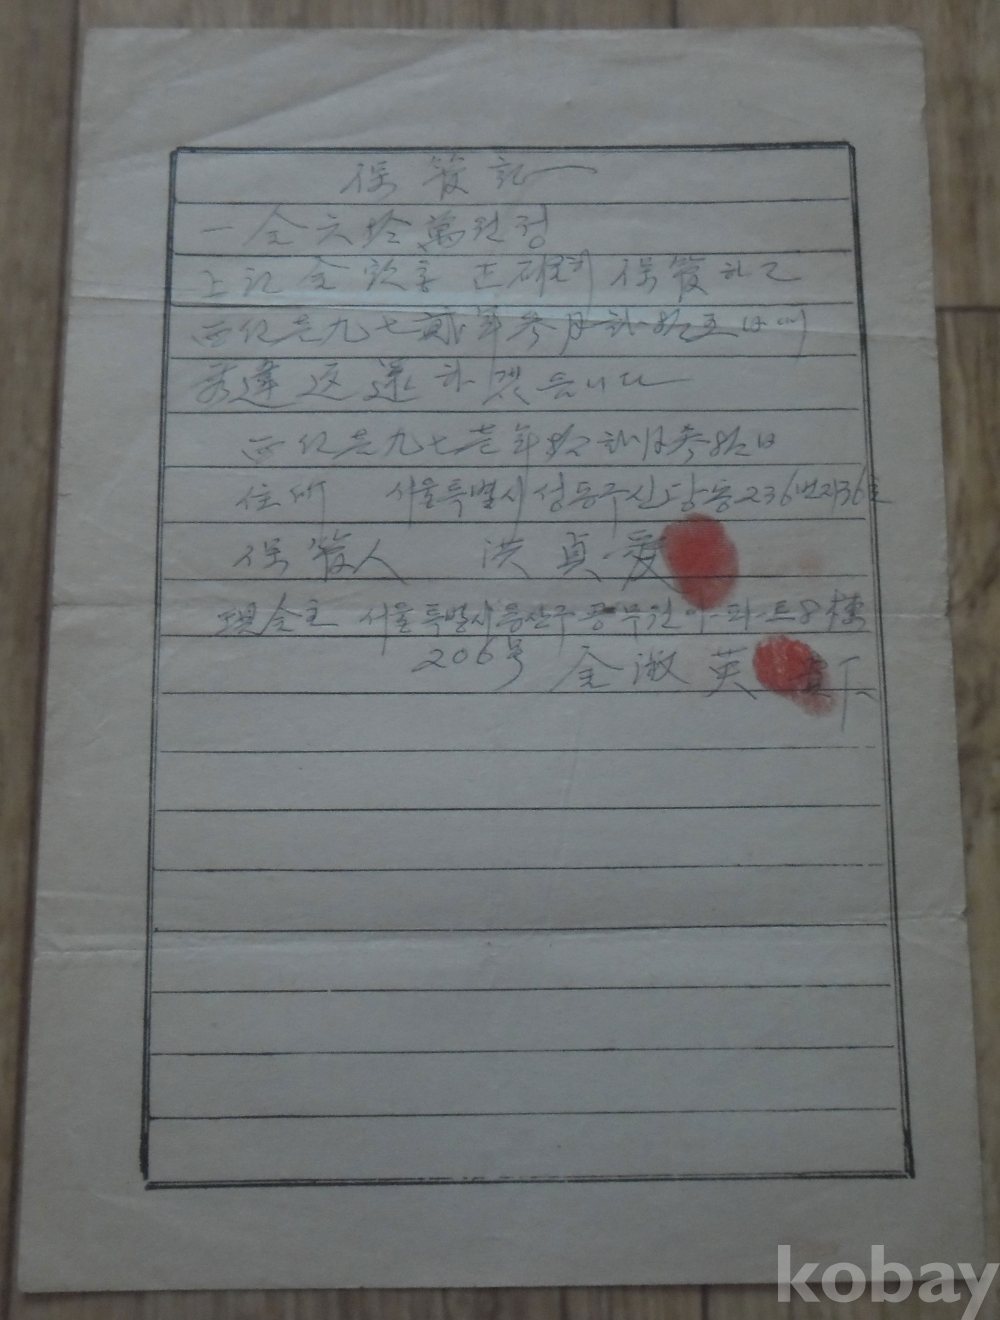 保管証
一金六拾萬원정
上記金額을 正確히 保管하고
西紀壱九七貳年参月貳拾五日에
返還하겠읍니다
西紀壱九七壱年拾貳月参拾日
住所 서울특별시 성동구 신당동 236번지 36호
保管人 洪貞愛
現金主 서울특별시 용산구 공무원 아파트 8棟
206号 金淑英 貴下
kobay